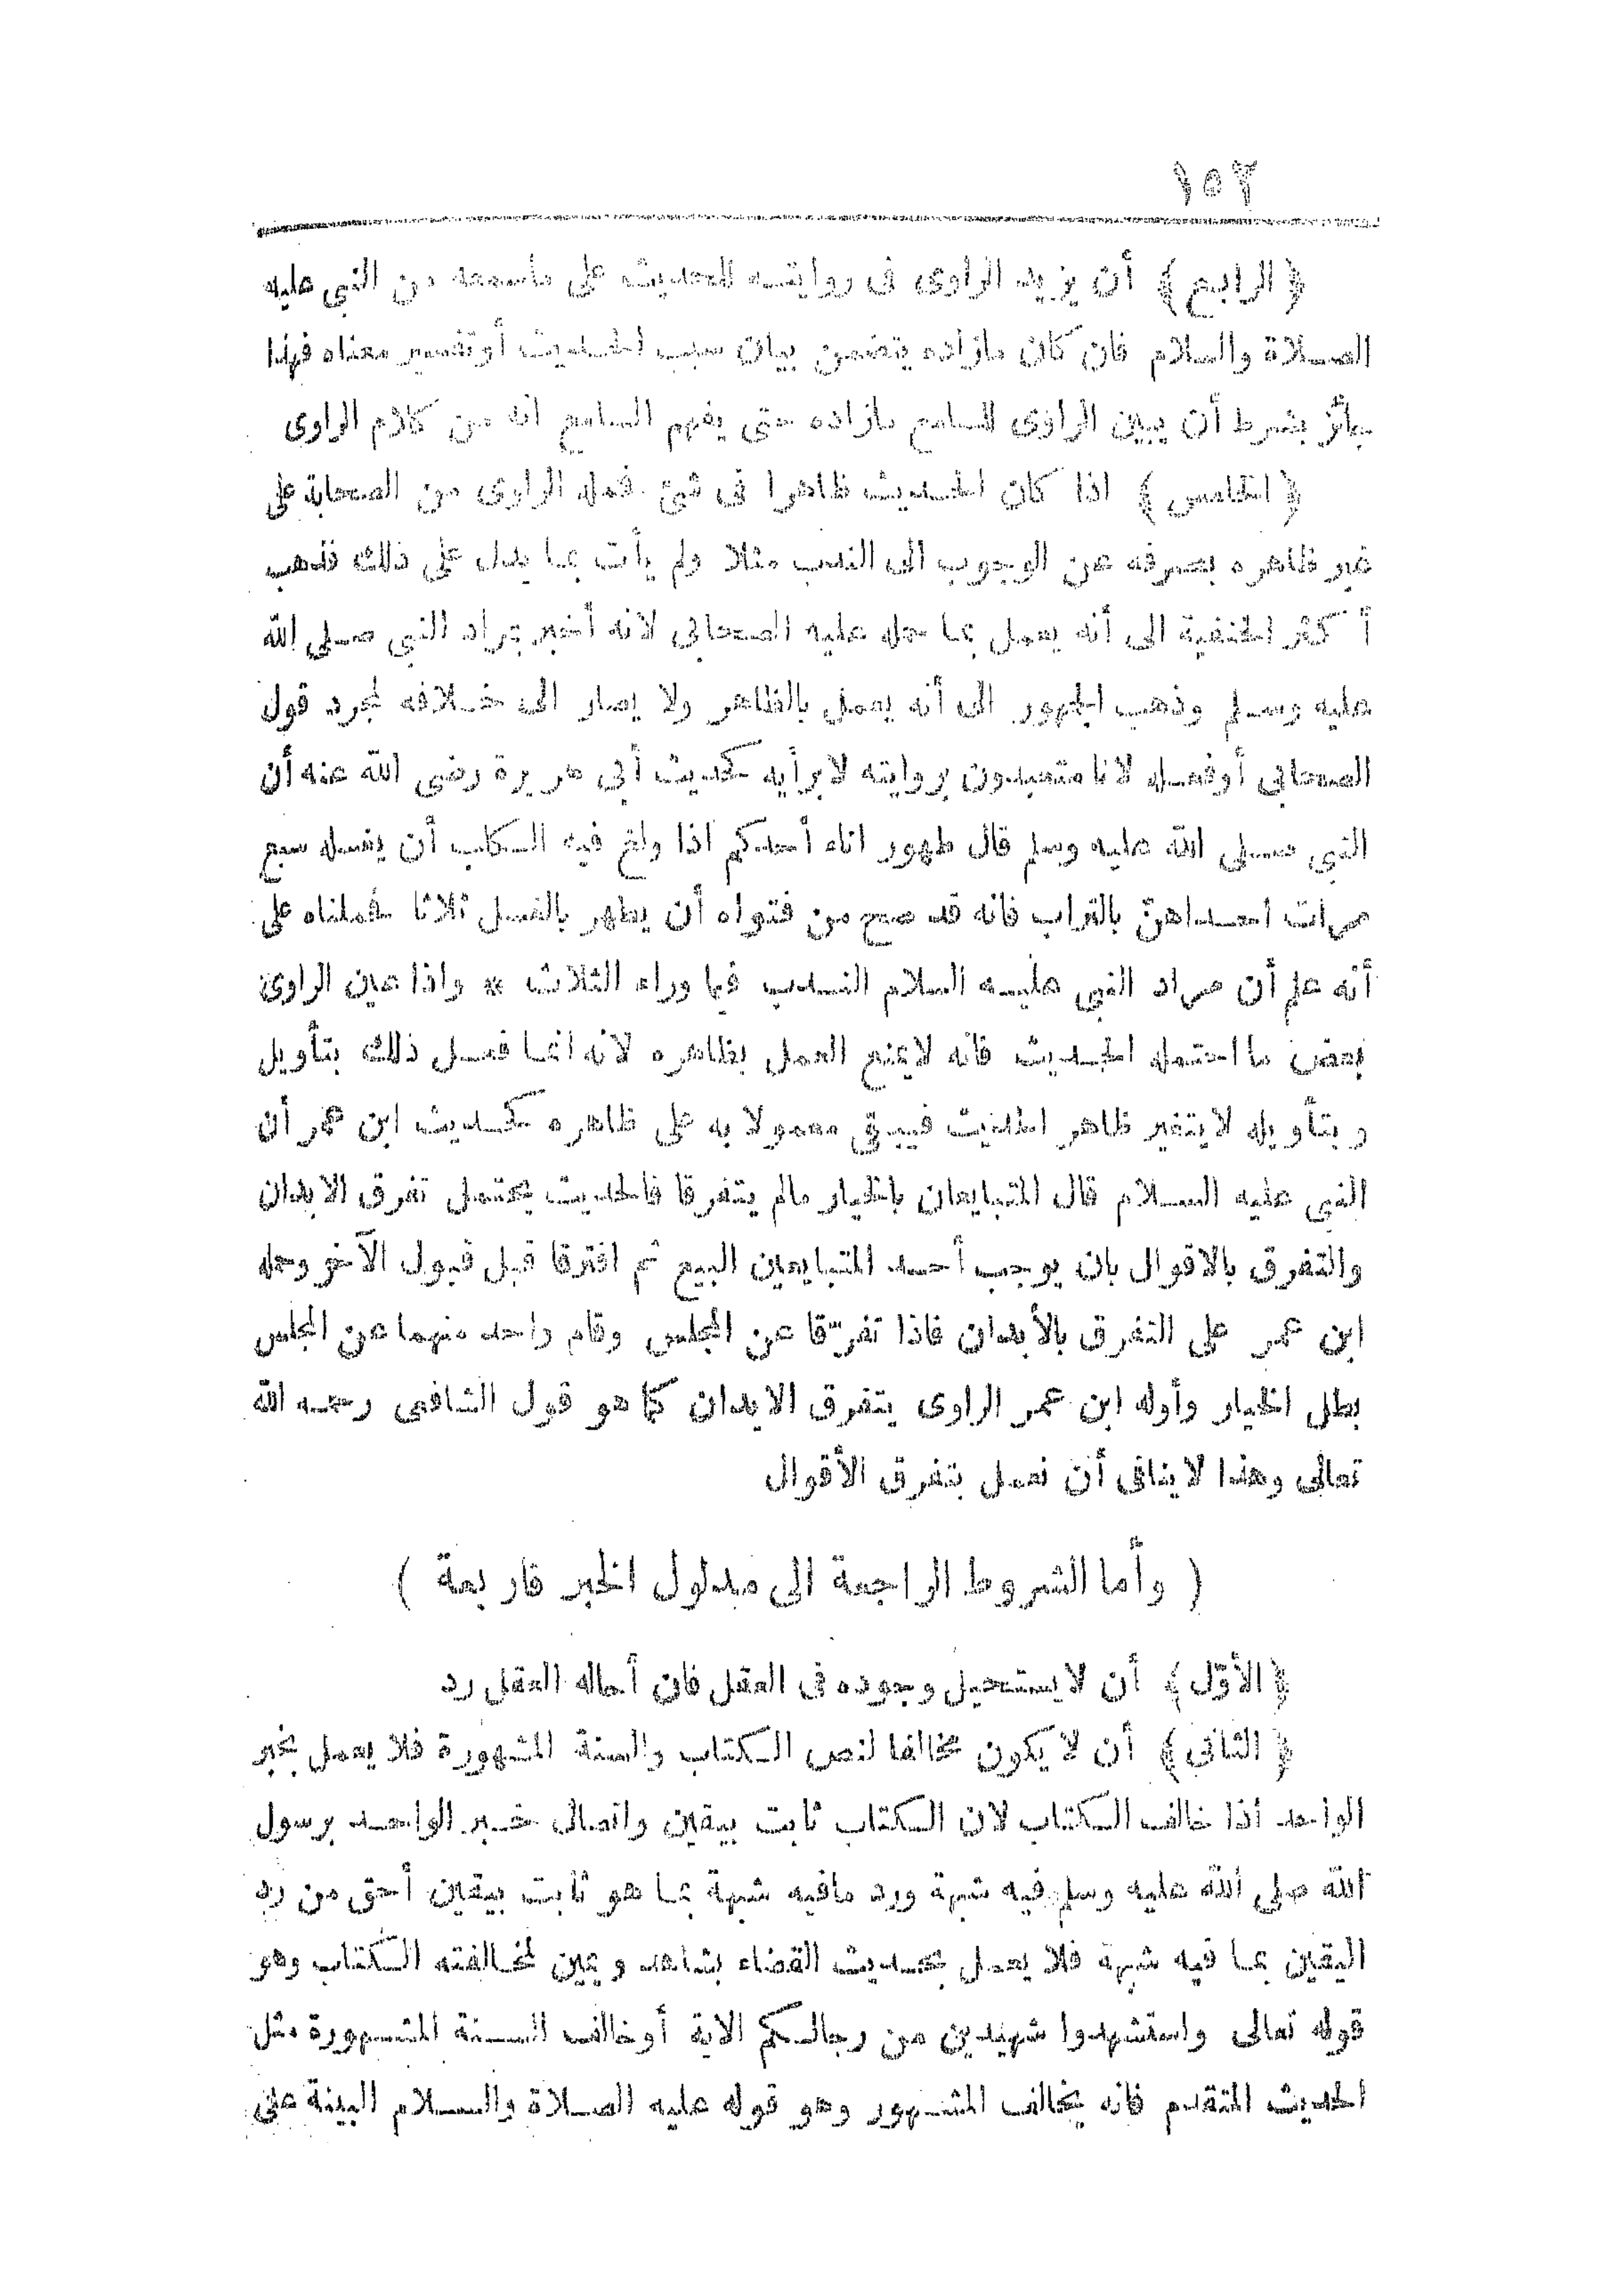 ١٥٢
﴿الرابع﴾ أن يزيد الراوى فى روايته للحديث على ماسمعه من النبى عليه
الصلاة والسلام فان كان مازاده يتضمن بيان سبب الحديث أو تفسير معناه فهذا
جائز بشرط أن يبين الراوى للسامع مازاده حتى يفهم السامع انه من كلام الراوى
﴿الخامس﴾ اذا كان الحديث ظاهرا فى شئ فحمله الراوى من الصحابة على
غير ظاهره بصرفه عن الوجوب الى الندب مثلا ولم يأت بما يدل على ذلك فذهب
أكثر الحنفية الى أنه يعمل بما حمله عليه الصحابى لانه أخبر بمراد النبى صلى الله
عليه وسلم وذهب الجمهور الى أنه يعمل بالظاهر ولا يصار الى خلافه لمجرد قول
الصحابى أوفعله لانا متعبدون بروايته لابرأيه كحديث أبى هريرة رضى الله عنه أن
النبى صلى الله عليه وسلم قال طهور اناء أحدكم اذا ولغ فيه الكلب أن يغسله سبع
مرات احداهنّ بالتراب فانه قد صح من فتواه أن يطهر بالغسل ثلاثا فحملناه على
أنه علم أن مراد النبى عليه السلام الندب فيما وراء الثلاث * واذا عين الراوى
بعض ما احتمله الحديث فانه لايمنع العمل بظاهره لانه انما فعل ذلك بتأويل
وبتأويله لايتغير ظاهر الحديث فيبقى معمولا به على ظاهره كحديث ابن عمر أن
النبى عليه السلام قال المتبايعان بالخيار مالم يتفرقا فالحديث يحتمل تفرق الابدان
والتفرق بالاقوال بان يوجب أحد المتبايعين البيع ثم افترقا قبل قبول الآخر وحمله
ابن عمر على التفرق بالأبدان فاذا تفرّقا عن المجلس وقام واحد منهما عن المجلس
بطل الخيار وأوله ابن عمر الراوى بتفرق الابدان كما هو قول الشافعى رحمه الله
تعالى وهذا لاينافى أن نعمل بتفرق الأقوال
( وأما الشروط الراجعة الى مدلول الخبر فاربعة )
﴿الأوّل﴾ أن لايستحيل وجوده فى العقل فان أحاله العقل رد
﴿الثانى﴾ أن لايكون مخالفا لنص الكتاب والسنة المشهورة فلا يعمل بخبر
الواحد اذا خالف الكتاب لان الكتاب ثابت بيقين واتصال خبر الواحد برسول
الله صلى الله عليه وسلم فيه شبهة ورد مافيه شبهة بما هو ثابت بيقين أحق من رد
اليقين بما فيه شبهة فلا يعمل بحديث القضاء بشاهد ويمين لمخالفته الكتاب وهو
قوله تعالى واستشهدوا شهيدين من رجالكم الاية أوخالف السنة المشهورة مثل
الحديث المتقدم فانه يخالف المشهور وهو قوله عليه الصلاة والسلام البينة على